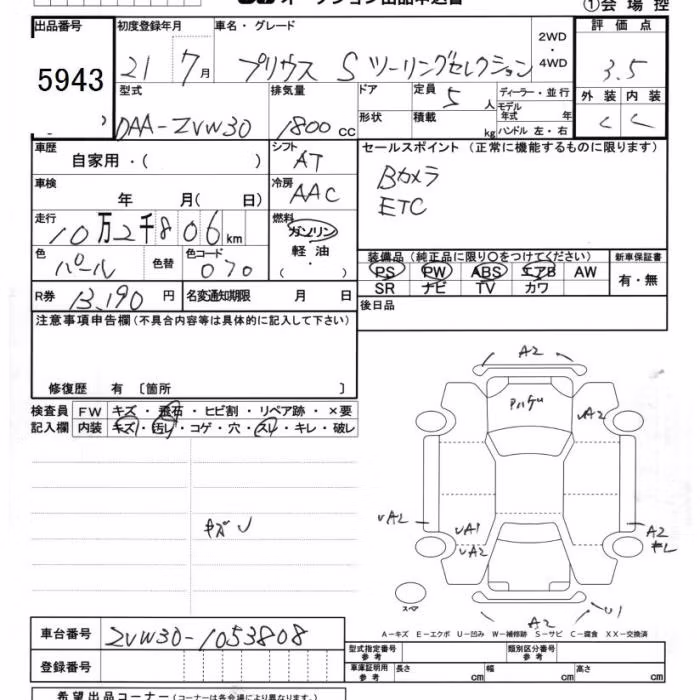 ①会場控
出品番号 初度登録年月 車名・グレード 評価点
5943 21 7月 プリウス S ツーリングセレクション 2WD・4WD 3.5
型式 排気量 ドア 定員 5人 ディーラー・並行 外装 内装
DAA-ZVW30 1800cc 形状 積載 kg モデル年式 年 ハンドル 左・右 C C
車歴 自家用・( ) シフト AT セールスポイント (正常に機能するものに限ります)
車検 年 月(日) 冷房 AAC Bカメラ
ETC
走行 10万2千806km 燃料 ガソリン・軽油・( )
色 パール 色替 色コード 070
装備品 (純正品に限り○をつけてください) 新車保証書
PS PW ABS エアB AW 有・無
SR ナビ TV カワ
R券 13,190円 名変通知期限 月 日 後日品
注意事項申告欄 (不具合内容等は具体的に記入して下さい)
修復歴 有 〔箇所 〕
検査員 FW キズ・飛石・ヒビ割・リペア跡・×要
記入欄 内装 キズ・汚レ・コゲ・穴・スレ・キレ・破レ
キズU
A2
UA2
UA2
UA1
UA2
A2
A2
U1
スペア
A-キズ E-エクボ U-凹み W-補修跡 S-サビ C-腐食 XX-交換済
車台番号 ZVW30-1053808
登録番号
型式指定番号 参考 類別区分番号 参考
車庫証明用 参考 長さ cm 幅 cm 高さ cm
希望出品コーナー (コーナーは各会場により異なります。)